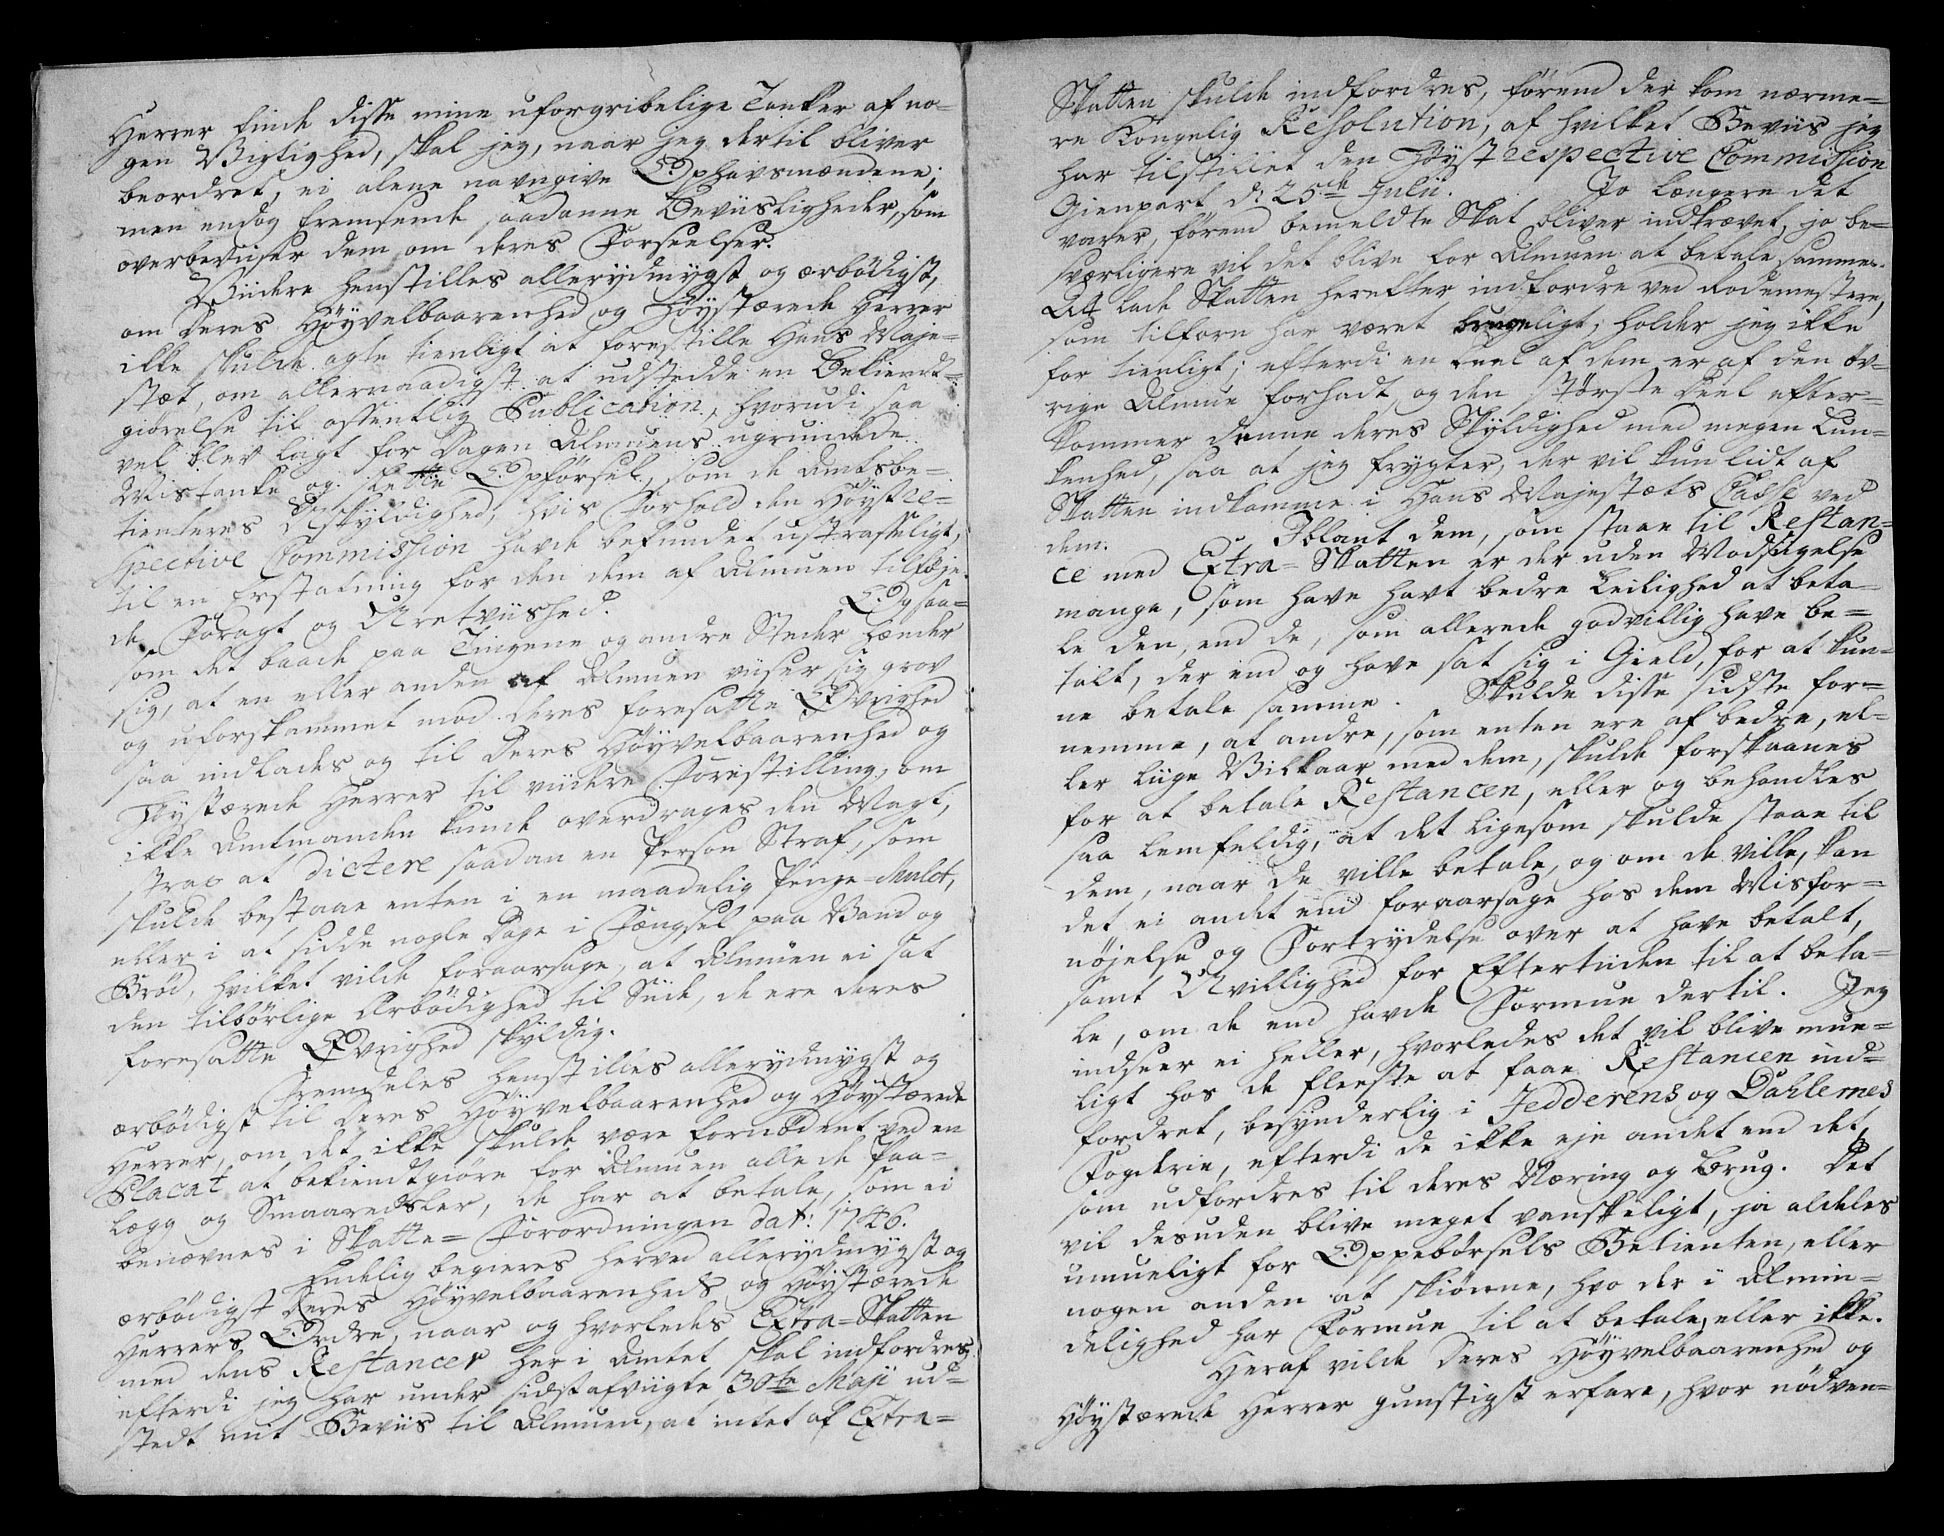 Herrer finde disse mine uforgribelige Tanker af no-
gen Vigtighed, skal jeg, naar jeg dertil bliver
beordret, ei alene navngive Ophavsmændene;
men endog fremsende saadanne Beviisligheder, som
overbeviser dem om deres Forseelser.
Viidere henstilles allerydmygst og ærbödigst,
om Deres Höyvelbaarenhed og Höystærede Herrer
ikke skulde agte tienligt at forestille Hans Maje-
stæt, om allernaadigst at udstedde en Bekiendt-
giörelse til offentlig Publication, hvorudi saa
vel blev lagt for Dagen Almuens ugrundede
Mistanke og Opförsel, som de Amtsbe-
tienteres Uskyldighed, hvis Forhold den Höyst re-
spective Commission havde befundet ustraffeligt,
til en Erstatning for den dem af Almuen tilföje-
de Foragt og Uretviished. Ogsaa-
som det baade paa Tingene og andre Steder hænder
sig, at en eller anden af Almuen viiser sig grov
og uforskammet mod deres foresatte Övrighed
saa indlades og til Deres Höyvelbaarenhed og
Höystærede Herrer til viidere Forestilling, om
ikke Amtmanden kunde overdrages den Magt,
strax at dictere saadan en Person Straf, som
skulde bestaae enten i en maadelig Penge-Mulct,
eller i at sidde nogle Dage i Fængsel paa Vand og
Bröd, hvilket vilde foraarsage, at Almuen ei sat
den tilbörlige Ærbödighed til Side, de ere deres
foresatte Övrighed skyldig.
Fremdeles henstilles allerydmygst og
ærbödigst til Deres Höyvelbaarenhed og Höystærede
Herrer, om det ikke skulde være fornödent ved en
Placat at bekiendtgiöre for Almuen alle de Paa-
læg og Smaaredsler, de har at betale, som ei
benævnes i Skatte-Forordningen dat: 1746.
Endelig begieres herved allerydmygst og
ærbödigst Deres Höyvelbaarenheds og Höystærede
Herrers Ordre, naar og hvorledes Extra-Skatten
med dens Restancer her i Amtet skal indfordres,
efterdi jeg har under sidstafvigte 30te Maji ud-
stedt mit Beviis til Almuen, at intet af Extra-
Skatten skulde indfordres, förend der kom nærme-
re Kongelig Resolution, af hvilket Beviis jeg
har tilstillet den Höyst respective Commission
Gienpart d: 25de Julii. Jo længere det
varer, förend bemeldte Skat bliver indkrævet, jo be-
sværligere vil det blive for Almuen at betale samme.
At lade Skatten herefter indfordre ved Rodemestere,
som tilforn har været brugeligt, holder jeg ikke
for tienligt; efterdi en Deel af dem er af den öv-
rige Almue forhadt, og den störste Deel efter-
kommer denne deres Skyldighed med megen Lun-
kenhed, saa at jeg frygter, der vil kun lidt af
Skatten indkomme i Hans Majestæts Casse ved
dem. Iblant dem, som staae til Restan-
ce med Extra-Skatten er der uden Modsigelse
mange, som have havt bedre Leilighed at beta-
le den, end de, som allerede godvillig have be-
talt, der end og have sat sig i Gield, for at kun-
ne betale samme. Skulde disse sidste for-
nemme, at andre, som enten ere af bedre, el-
ler liige Vilkaar med dem, skulde forskaanes
for at betale Restancen, eller og behandles
saa lemfeldig, at det ligesom skulde staae til
dem, naar de ville betale, og om de ville, kan
det ei andet end foraarsage hos dem Misfor-
nöjelse og Fortrydelse over at have betalt,
samt Uvillighed for Eftertiiden til at beta-
le, om de end havde Formue dertil. Jeg
indseer ei heller, hvorledes det vil blive mue-
ligt hos de fleeste at faae Restancen ind-
fordret, besynderlig i Jedderens og Dahlernes
Fogderie, efterdi de ikke eje andet end det,
som udfordres til deres Næring og Brug. Det
vil desuden blive meget vanskeligt, ja aldeles
umueligt for Oppebörsels Betienten, eller
nogen anden at skiönne, hvo der i Almin-
delighed har Formue til at betale, eller ikke.
Heraf vilde Deres Höyvelbaarenhed og
Höystærede Herrer gunstigst erfare, hvor nödven-